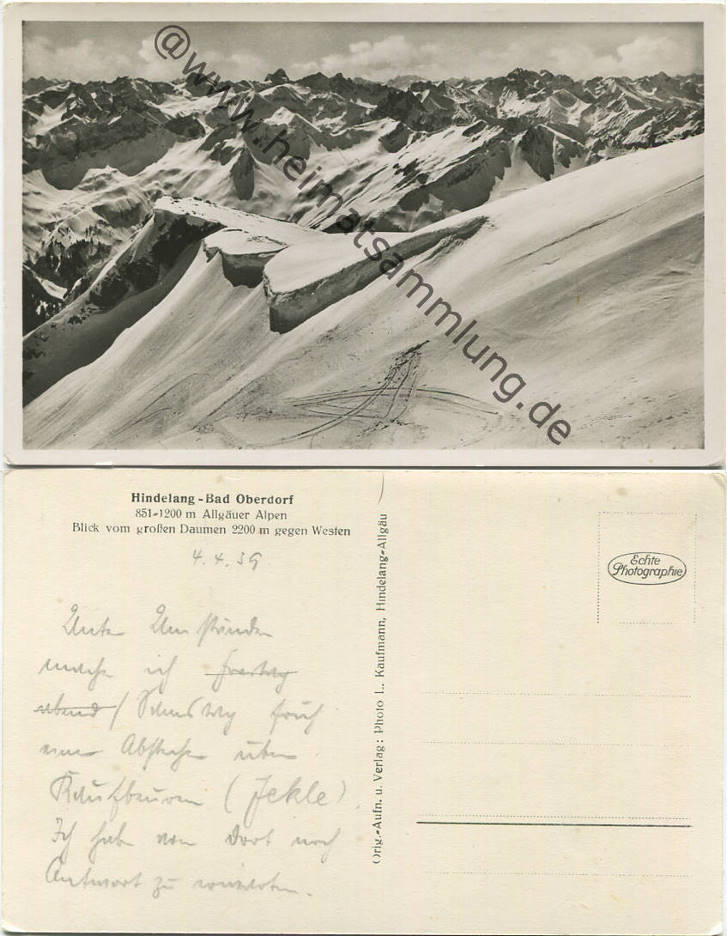 @www.heimatsammlung.de
Hindelang-Bad Oberdorf
851-1200 m Allgäuer Alpen
Blick vom großen Daumen 2200 m gegen Westen
4.4.39
Unter Umständen
mache ich Freitag
abend / Samstag früh
einen Abstecher über
Kaufbeuren (Jekle).
Ich habe von dort noch
Antwort zu
Orig.-Aufn. u. Verlag: Photo L. Kaufmann, Hindelang-Allgäu
Echte
Photographie